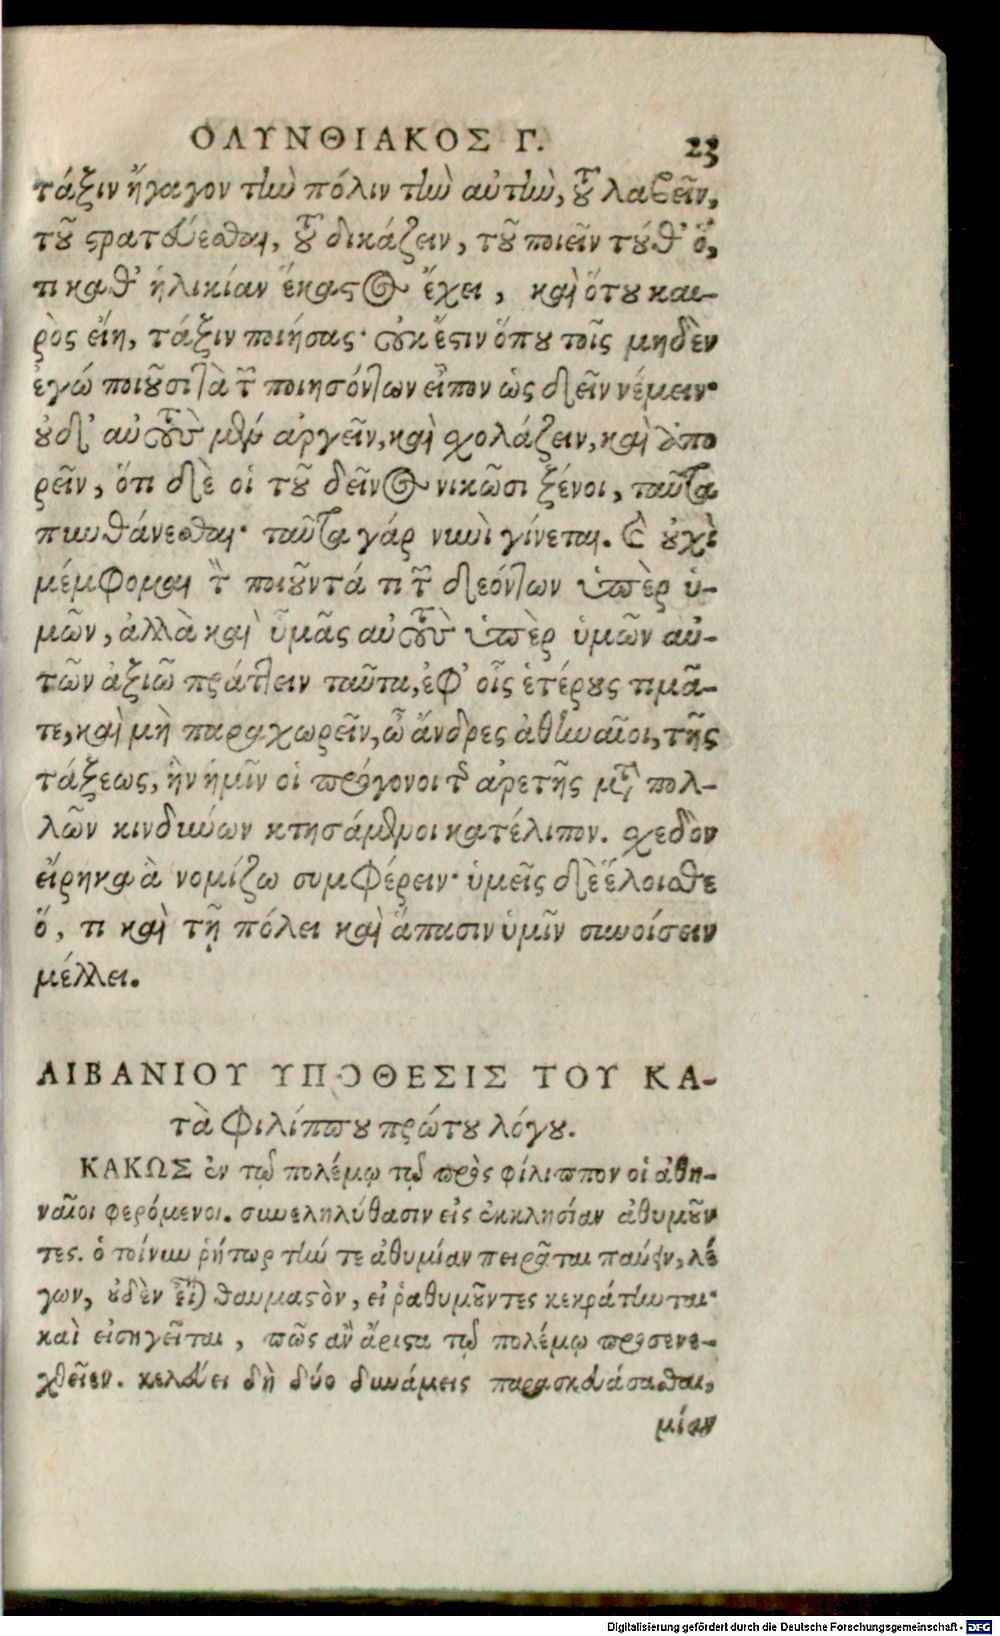 ΟΛΥΝΘΙΑΚΟΣ Γ. 23
τάξιν ἤγαγον τὴν πόλιν τὴν αὐτὴν, τοῦ λαβεῖν,
τοῦ στρατεύεσθαι, τοῦ δικάζειν, τοῦ ποιεῖν τοῦθ' ὅ,
τι καθ' ἡλικίαν ἕκαστος ἔχει, καὶ ὅτου και-
ρὸς εἴη, τάξιν ποιήσας· οὐκ ἔστιν ὅπου τοῖς μηδὲν
ἐγώ ποιοῦσι τὰ τῶν ποιησόντων εἶπον ὡς δεῖν νέμειν·
οὐδ' αὐτοὺς μὲν ἀργεῖν, καὶ σχολάζειν, καὶ ἀπο
ρεῖν, ὅτι δὲ οἱ τοῦ δεῖνος νικῶσι ξένοι, ταῦτα
πυνθάνεσθαι· ταῦτα γάρ νυνὶ γίνεται. καὶ οὐχὶ
μέμφομαι τὸν ποιοῦντά τι τῶν δεόντων ὑπὲρ ὑ-
μῶν, ἀλλὰ καὶ ὑμᾶς αὐτοὺς ὑπὲρ ὑμῶν αὐ-
τῶν ἀξιῶ πράττειν ταῦτα, ἐφ' οἷς ἑτέρους τιμᾶ-
τε, καὶ μὴ παραχωρεῖν, ὦ ἄνδρες ἀθηναῖοι, τῆς
τάξεως, ἣν ἡμῖν οἱ πρόγονοι τῆς ἀρετῆς μετὰ πολ-
λῶν κινδύνων κτησάμενοι κατέλιπον. σχεδὸν
εἴρηκα ἃ νομίζω συμφέρειν· ὑμεῖς δὲ ἕλοισθε
ὅ, τι καὶ τῇ πόλει καὶ ἅπασιν ὑμῖν συνοίσειν
μέλλει.
ΛΙΒΑΝΙΟΥ ΥΠΟΘΕΣΙΣ ΤΟΥ ΚΑ-
τὰ Φιλίππου πρώτου λόγου.
ΚΑΚΩΣ ἐν τῷ πολέμῳ τῷ πρὸς φίλιππον οἱ ἀθη-
ναῖοι φερόμενοι. συνεληλύθασιν εἰς ἐκκλησίαν ἀθυμοῦν
τες. ὁ τοίνυν ῥήτωρ τήν τε ἀθυμίαν πειρᾶται παύειν, λέ
γων, οὐδὲν εἶναι θαυμαστὸν, εἰ ῥαθυμοῦντες κεκράτηνται·
καὶ εἰσηγεῖται, πῶς ἂν ἄριστα τῷ πολέμῳ προσενε-
χθεῖεν. κελεύει δὴ δύο δυνάμεις παρασκευάσασθαι,
μίαν
Digitalisierung gefördert durch die Deutsche Forschungsgemeinschaft - DFG